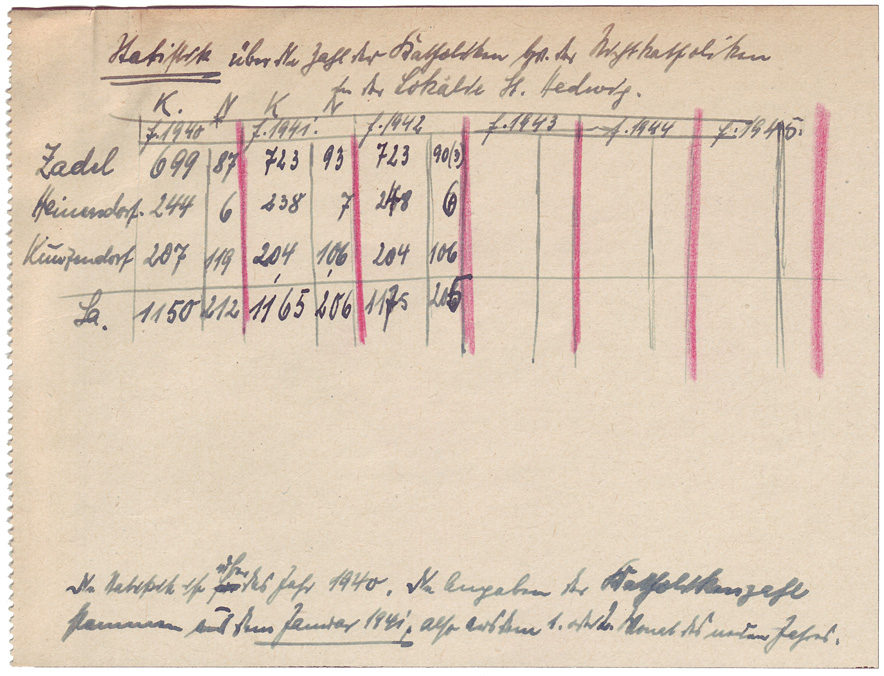 Statistik über die Zahl der Katholiken bzw. der Nichtkatholiken
in der Lokalie St. Hedwig.
K. N K N
f. 1940 f. 1941. f. 1942 f. 1943 f. 1944 f. 1945.
Zadel 699 87 723 93 723 90(3)
Heinersdorf. 244 6 238 7 248 6
Kunzendorf 207 119 204 106 204 106
Sa. 1150 212 1165 206 1175 205
Die Statistik ist über das Jahr 1940. Die Angaben der Katholikenzahl
stammen aus dem Januar 1941, also aus dem 1. oder 2. Monat des neuen Jahres.